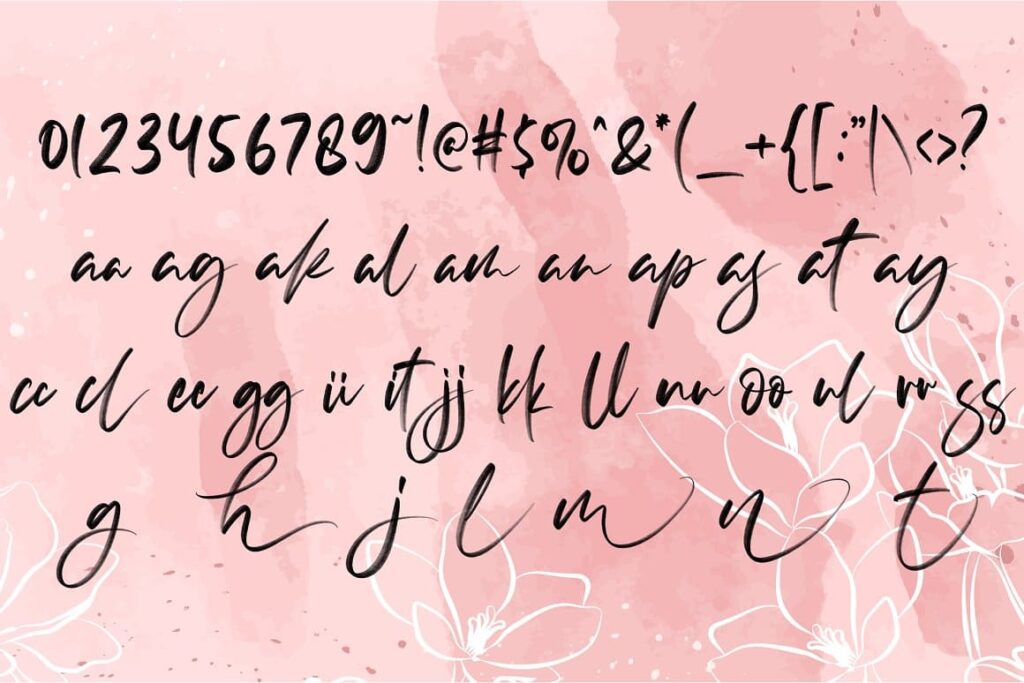 0123456789~!@#$%^&*(_+{[:"|\<>?
aa ag ak al am an ap as at ay
cc cl ee gg ii it jj kk ll nn oo ul rr ss
g h j l m n t